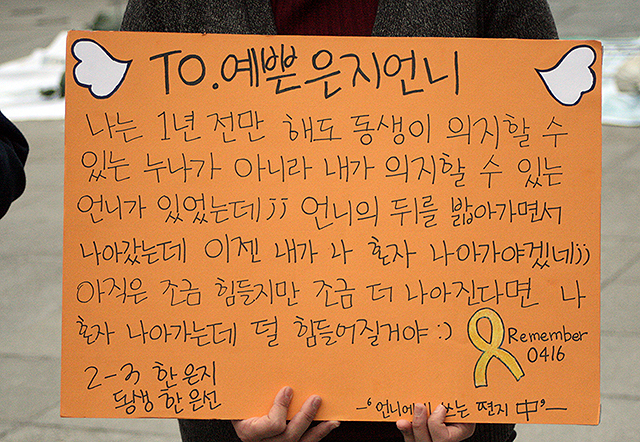 TO.예쁜 은지언니
나는 1년 전만 해도 동생이 의지할 수
있는 누나가 아니라 내가 의지할 수 있는
언니가 있었는데jj 언니의 뒤를 밟아가면서
나아갔는데 이젠 내가 나 혼자 나아가야겠네jj
아직은 조금 힘들지만 조금 더 나아진다면 나
혼자 나아가는데 덜 힘들어질거야 :)
Remember
0416
2-3 한은지
동생 한은선
-'언니에게 쓰는 편지 中'-